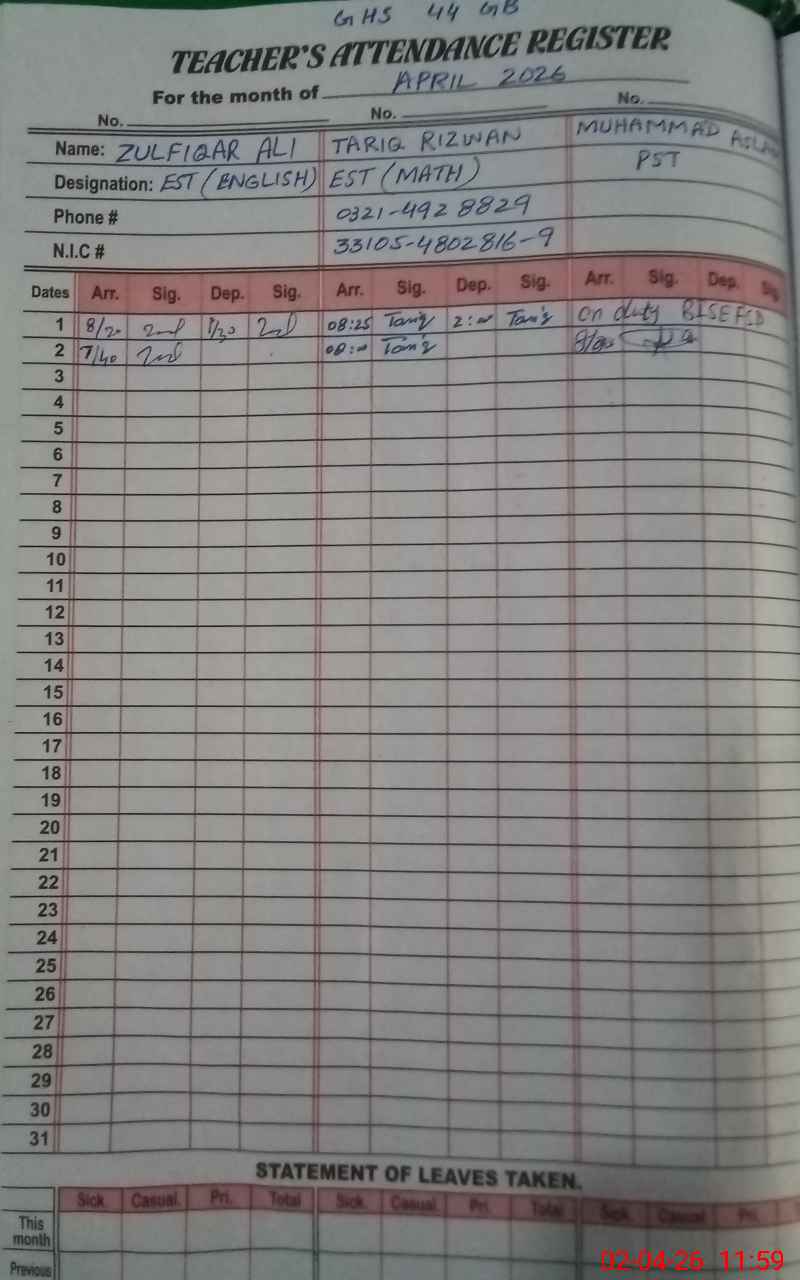 GHS 44 GB
TEACHER'S ATTENDANCE REGISTER
For the month of APRIL 2026
No. No. No.
Name: ZULFIQAR ALI TARIQ RIZWAN MUHAMMAD ASLAM
Designation: EST (ENGLISH) EST (MATH) PST
Phone # 0321-4928829
N.I.C # 33105-4802816-9
Dates Arr. Sig. Dep. Sig. Arr. Sig. Dep. Sig. Arr. Sig. Dep. Sig
1 8/20 1/30 08:25 Tariq 2:00 Tariq On duty BISE FSD
2 7/40 08:00 Tariq
3
4
5
6
7
8
9
10
11
12
13
14
15
16
17
18
19
20
21
22
23
24
25
26
27
28
29
30
31
STATEMENT OF LEAVES TAKEN.
Sick. Casual. Pri. Total Sick. Casual. Pri. Total Sick. Casual Pri.
This month
Previous
02-04-26 11:59